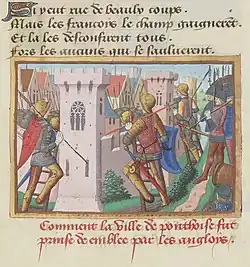 Il y eut rue de beaulx coups.
Mais les francois le champ gaignerẽt
Et la les desconfirent tous.
Fors les aucuns qui se saulverent.
Comment la ville de ponthoise fut
prinse de emblee par les anglois.